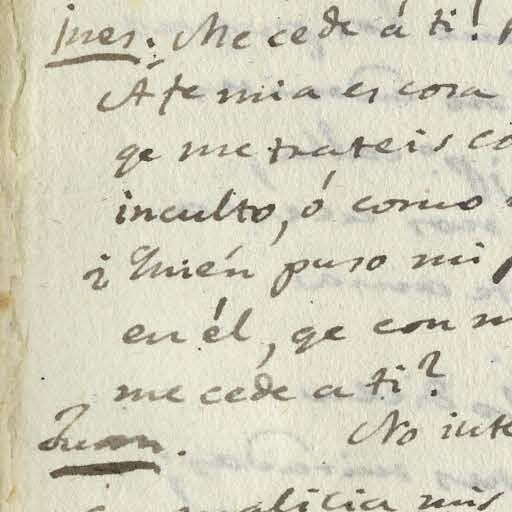 Ines. Me cede á ti!
Á fe mia es cosa
qe me trateis co
inculto, ó como
¿Quién puso mi
en él, qe con m
me cede a ti?
Juan. No inte
malicia mis